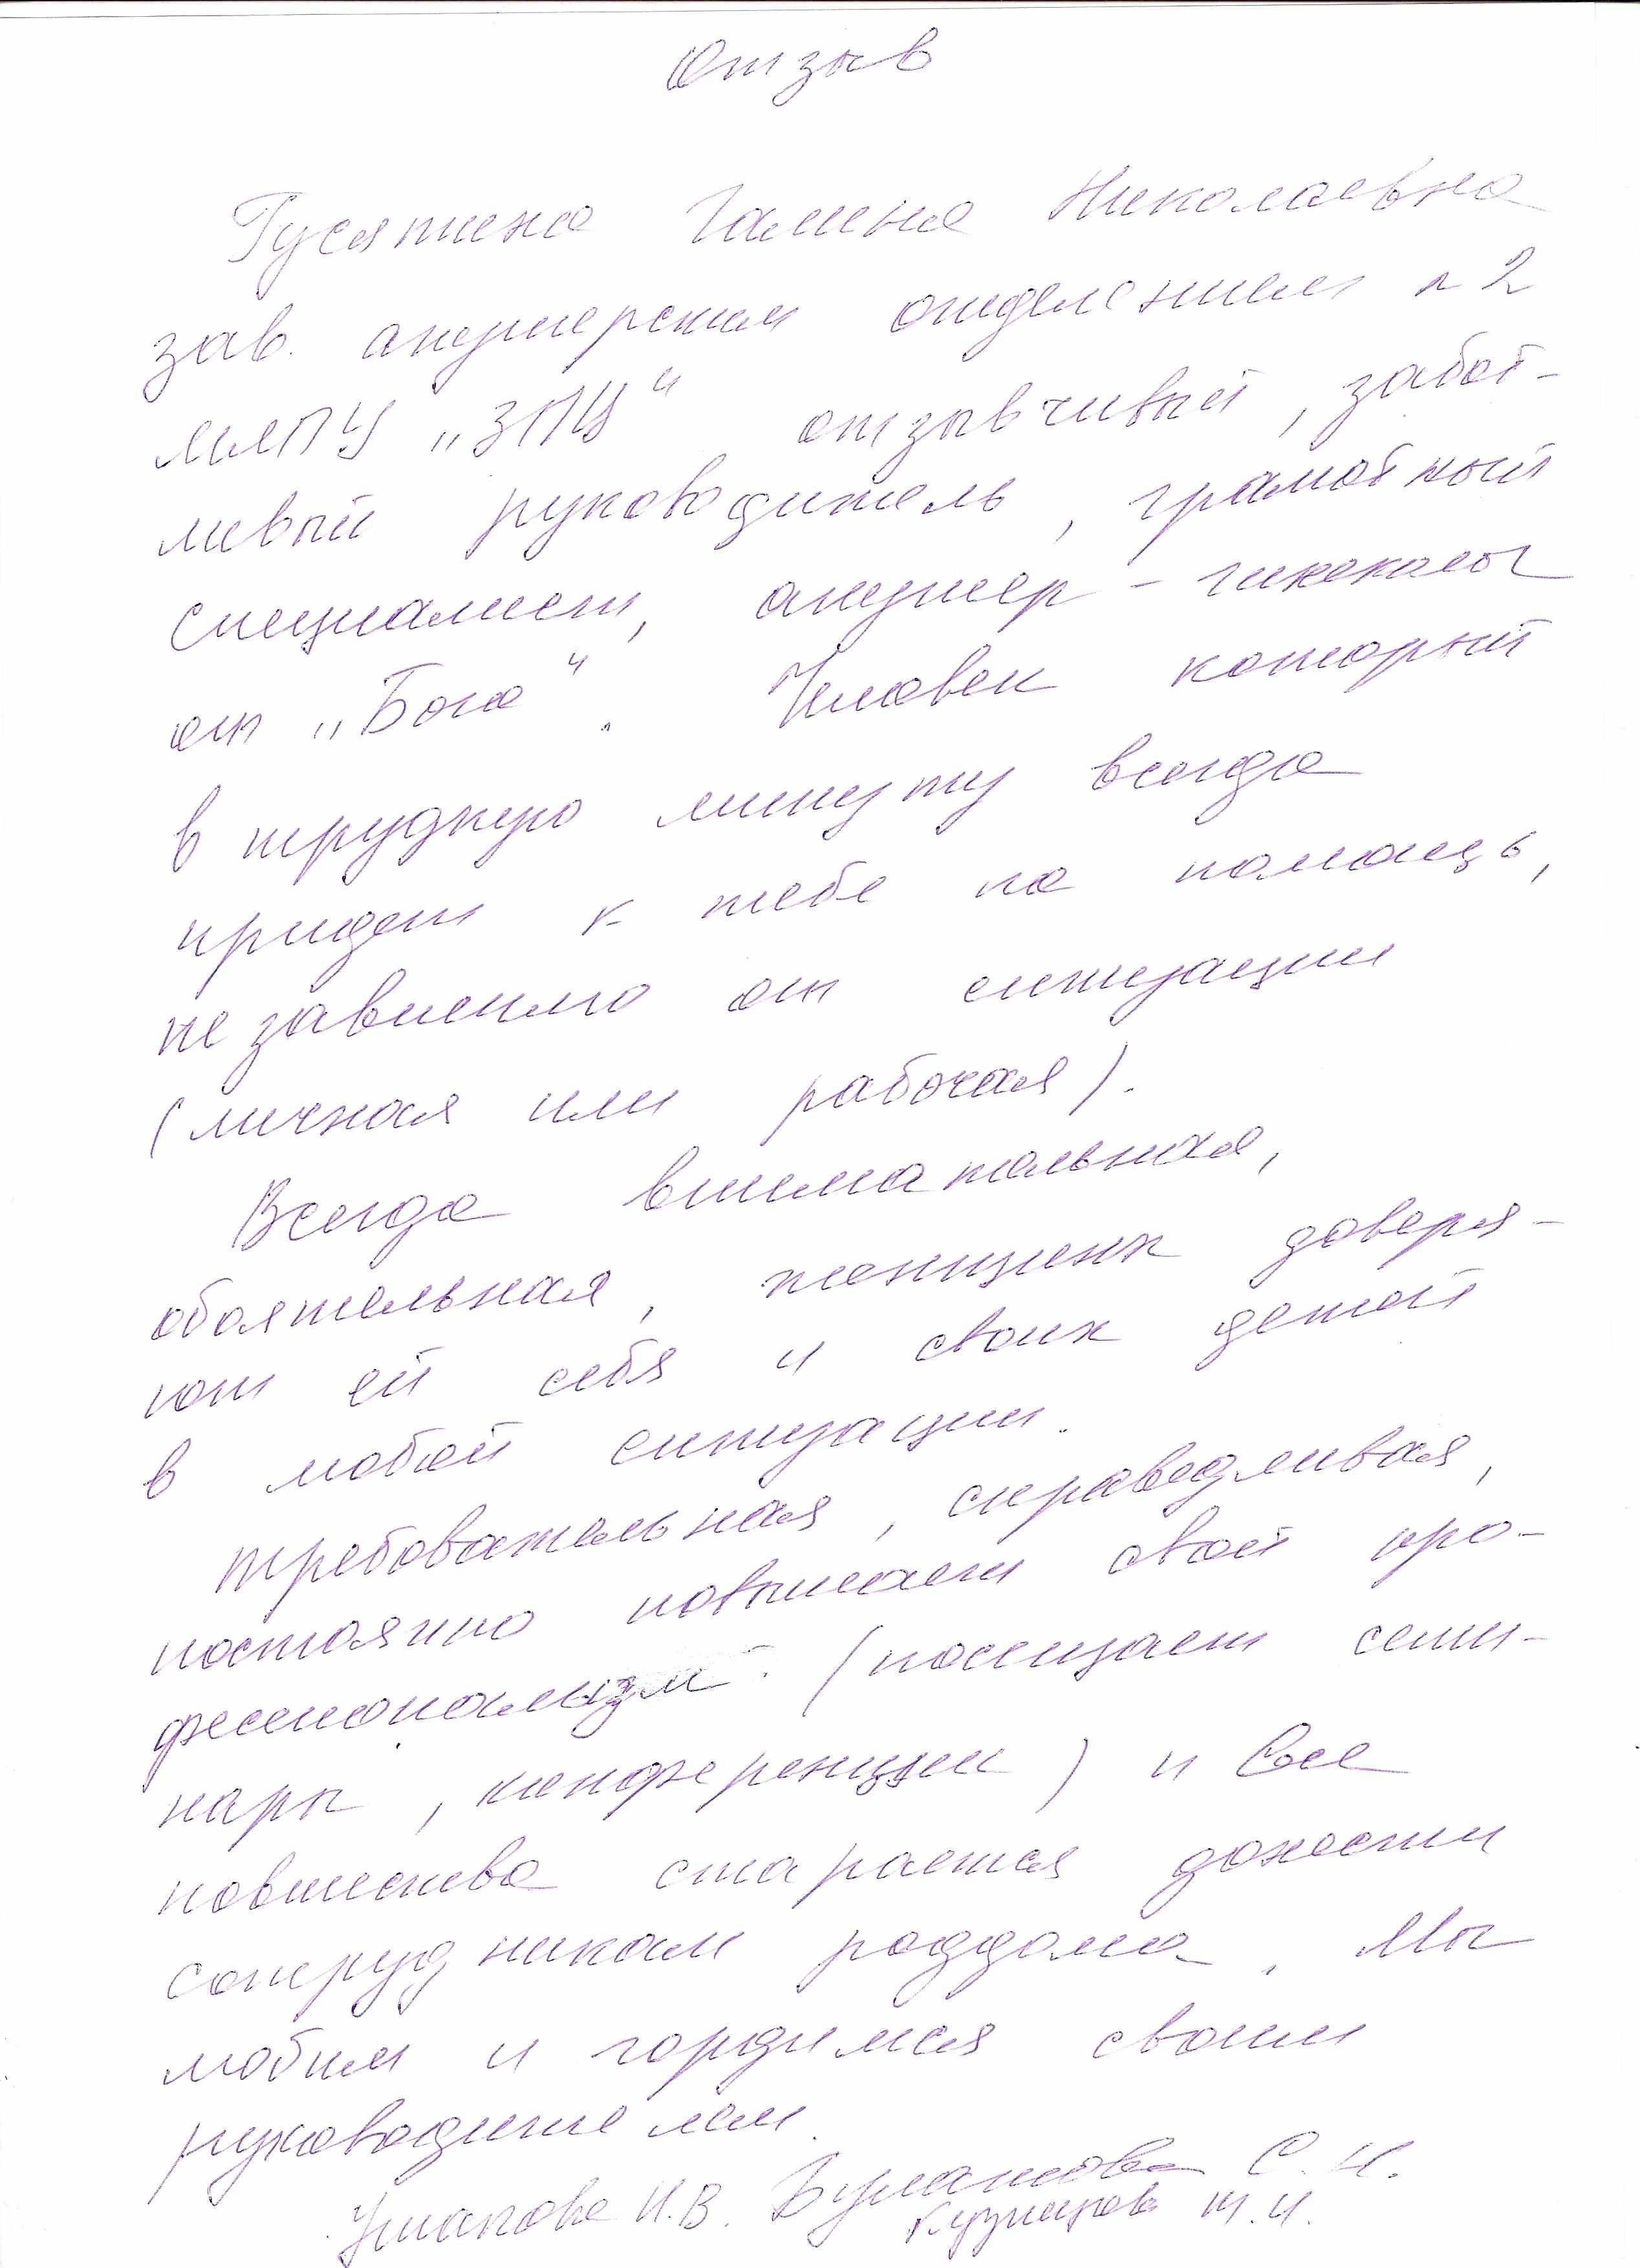 Отзыв
Гусятина Галина Николаевна
зав. акушерским отделением №2
ММПУ „ЗПЦ" отзывчивый, забот-
ливый руководитель, грамотный
специалист, акушер - гинеколог
от „Бога". Человек который
в трудную минуту всегда
придет к тебе на помощь,
независимо от ситуации
(личная или рабочая).
Всегда внимательная,
обоятельная, женщины доверя-
ют ей себя и своих детей
в любой ситуации.
Требовательная, справедливая,
постоянно повышает свой про-
фессионализм (посещает семи-
нары, конференции) и все
новшества старается донести
сотрудникам роддома. Мы
любим и гордимся своим
руководителем.
Ушакова И.В. С.И.
Кузнецова Т.И.